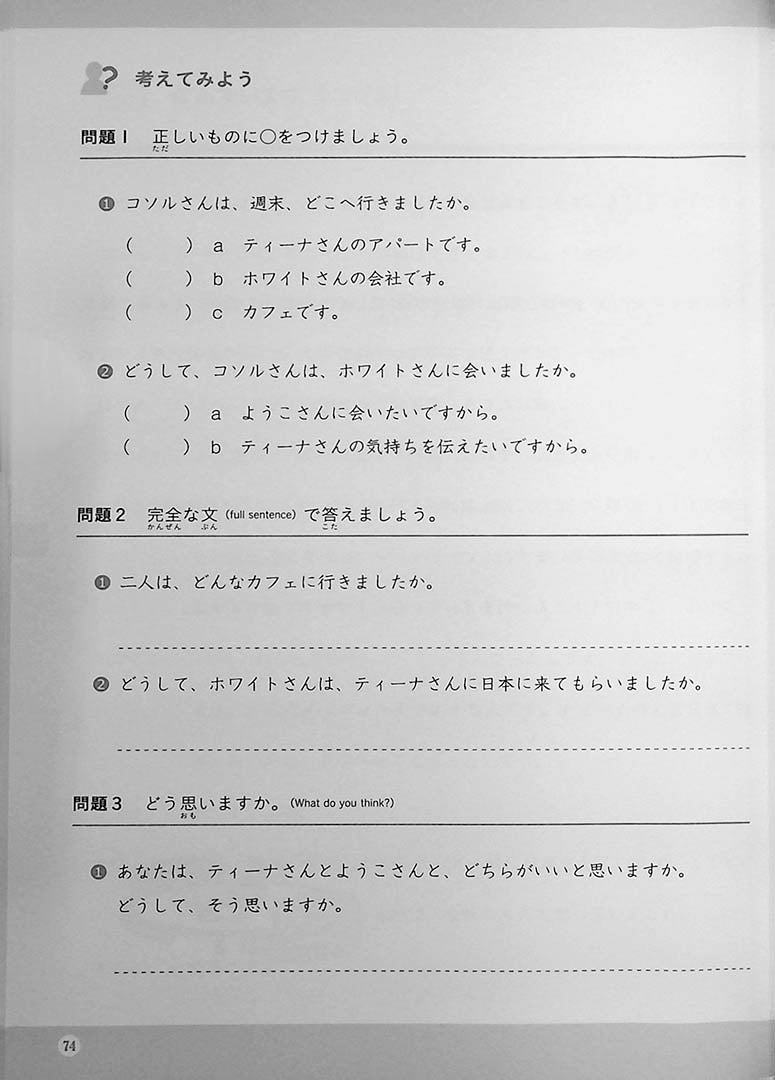 考えてみよう
問題1 正しいものに○をつけましょう。
ただ
❶ コソルさんは、週末、どこへ行きましたか。
(　　) a ティーナさんのアパートです。
(　　) b ホワイトさんの会社です。
(　　) c カフェです。
❷ どうして、コソルさんは、ホワイトさんに会いましたか。
(　　) a ようこさんに会いたいですから。
(　　) b ティーナさんの気持ちを伝えたいですから。
問題2 完全な文(full sentence)で答えましょう。
かんぜん ぶん こた
❶ 二人は、どんなカフェに行きましたか。
❷ どうして、ホワイトさんは、ティーナさんに日本に来てもらいましたか。
問題3 どう思いますか。(What do you think?)
おも
❶ あなたは、ティーナさんとようこさんと、どちらがいいと思いますか。
どうして、そう思いますか。
74